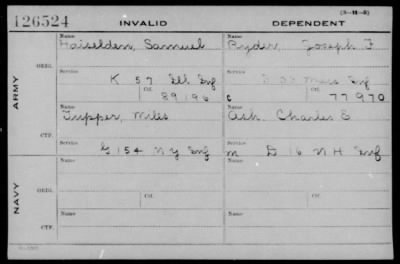 (3-111-5)
126524 INVALID DEPENDENT
ARMY
ORIG.
Name Haiselden, Samuel
Name Ryder, Joseph F
Service K 57 Ill Inf
Service Mass Inf
Ctf. 89196
C Ctf. 77970
CTF.
Name Tupper, Miles
Name Ash, Charles E
Service G 154 N Y Inf
Service m D 16 N H Inf
NAVY
ORIG.
Name
Ctf.
Name
Ctf.
CTF.
Name
Name